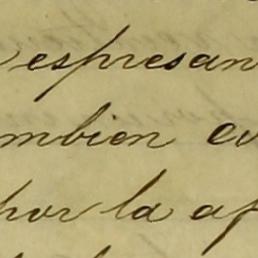 espresan
mbien en
por la ap